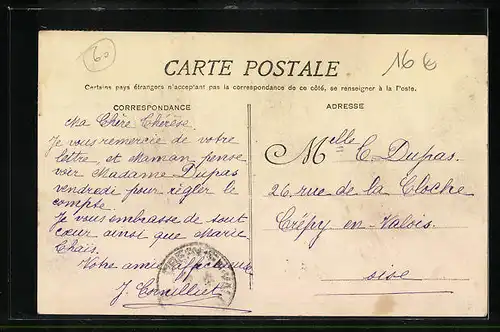 60
16 €
CARTE POSTALE
Certains pays étrangers n'acceptant pas la correspondance de ce côté, se renseigner à la Poste.
CORRESPONDANCE
Ma Chère Thérèse.
Je vous remercie de votre
lettre, et Maman pense
voir Madame Dupas
vendredi pour régler le
compte.
Je vous embrasse de tout
cœur ainsi que Marie
Votre amie affectionnée
J. Cornilliet
ADRESSE
Melle C. Dupas.
26, rue de la Cloche
Crépy en-Valois.
oise